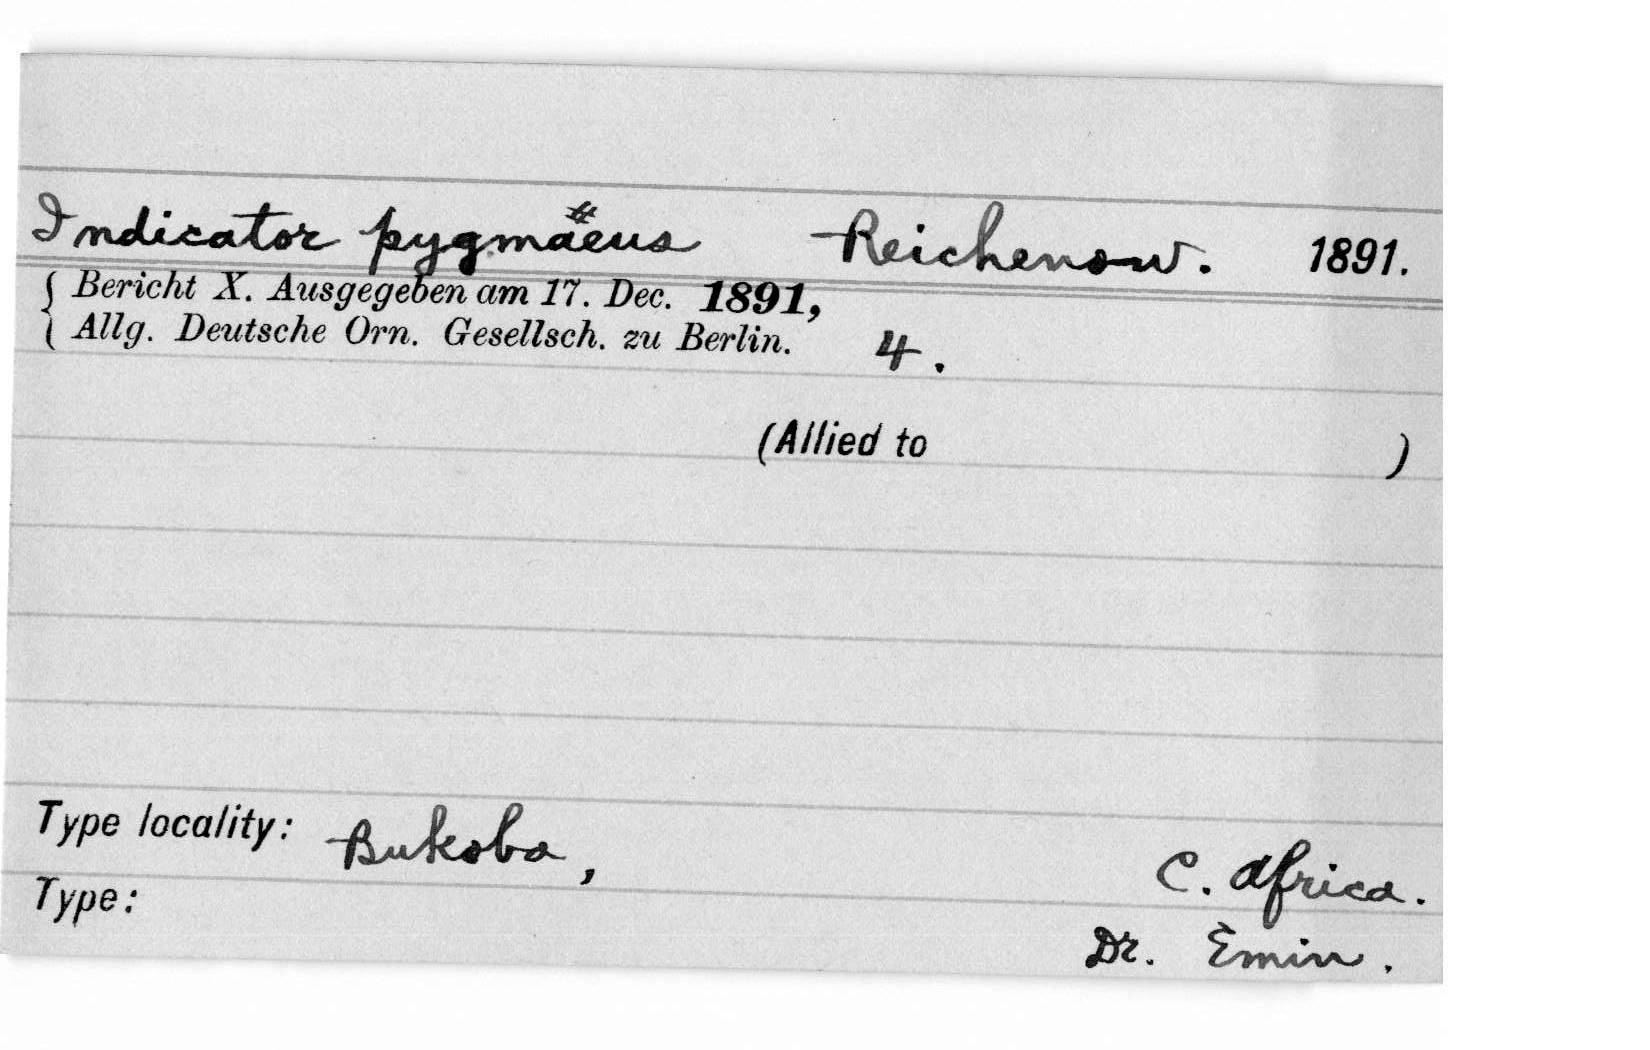 Indicator pygmaeus Reichenow. 1891.
{ Bericht X. Ausgegeben am 17. Dec. 1891,
{ Allg. Deutsche Orn. Gesellsch. zu Berlin. 4.
(Allied to )
Type locality: Bukoba, C. Africa.
Type: Dr. Emin.